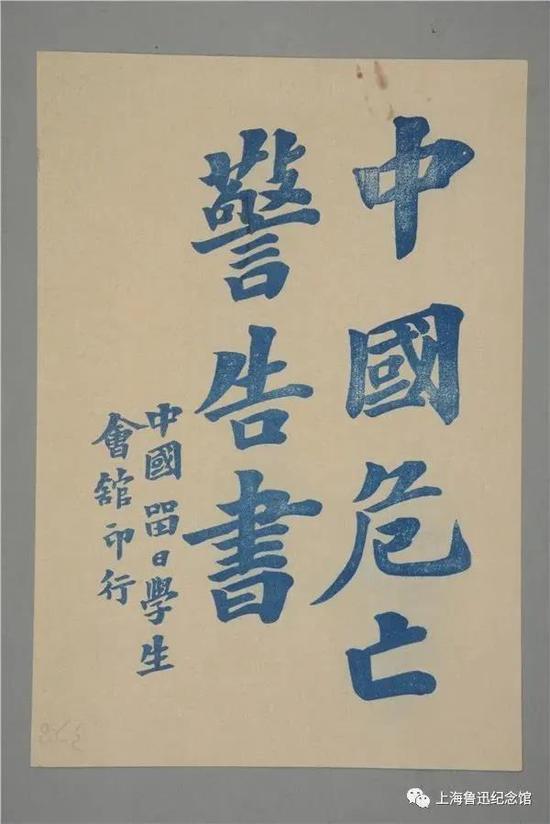 中國危亡
警告書
中國畱日學生
會館印行
上海鲁迅纪念馆